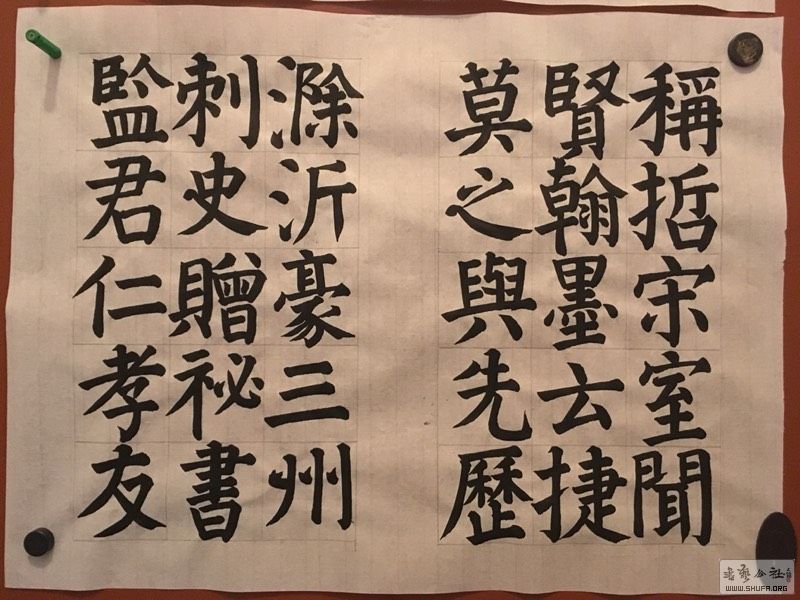 稱哲宗室聞
賢翰墨云捷
莫之與先歷
滁沂豪三州
刺史贈祕書
監君仁孝友
WWW.SHUFA.ORG